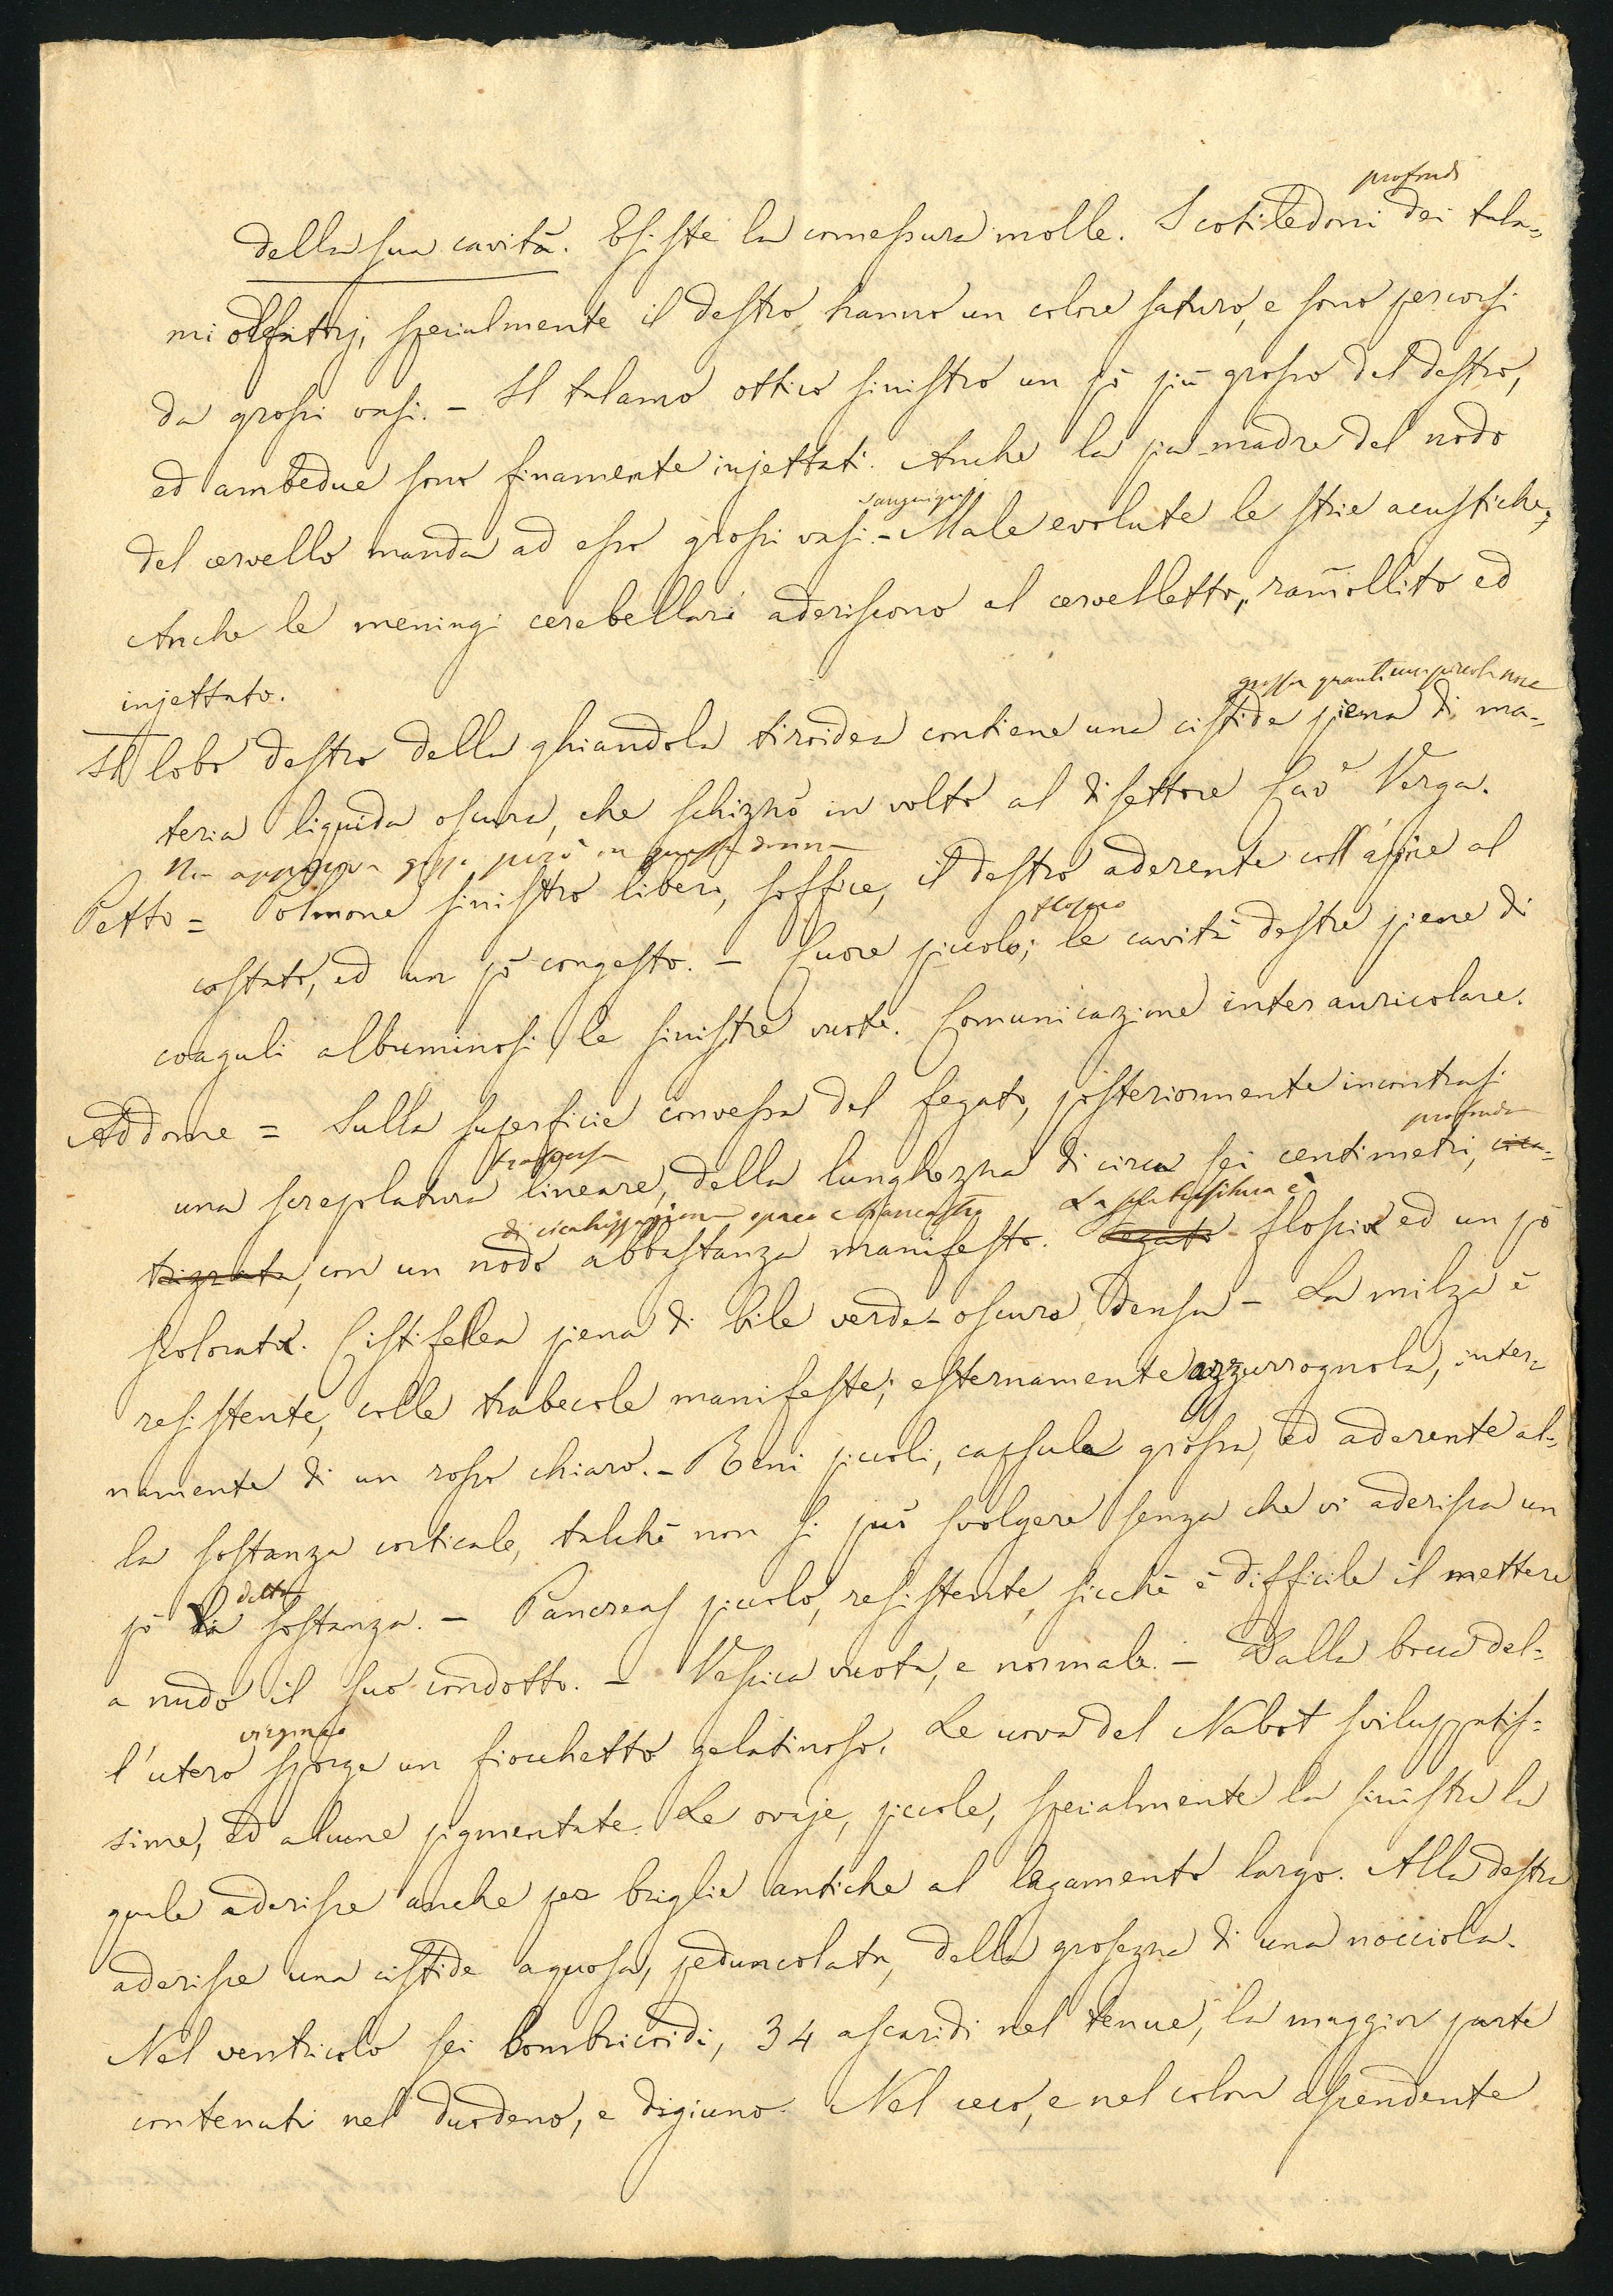 profondi
della sua cavità. Esiste la comessura molle. I cotiledoni dei tala=
mi olfattorj, specialmente il destro, hanno un colore saturo, e sono percorsi
da grossi vasi. – Il talamo ottico sinistro un pò più grosso del destro,
ed ambedue sono finamente injettati. Anche la pia-madre del nodo
sanguigni
del cervello manda ad esso grossi vasi. – Male evolute le strie acustiche;
Anche le meningi cerebellari aderiscono al cervelletto, ramollito ed
injettato.
grossa quanto una piccola noce
Il lobo destro della ghiandola tiroidea contiene una cistide piena di ma=
teria liquida oscura, che schizzò in volto al disettore Cav.e Verga.
Non appariva gozzo però in questa donna
Petto = Polmone sinistro libero, soffice, il destro aderente coll'apice al
floscio
costato, ed un pò congesto. – Cuore piccolo; le cavità destre piene di
coaguli albuminosi, le sinistre vuote. Comunicazione interauricolare.
Addome = Sulla superficie convessa del fegato, posteriormente incontrasi
trasversa profonda
una screpolatura lineare, della lunghezza di circa sei centimetri, cica=
di cicatrizzazione opaco e biancastro La sostanza è
trizzata, con un nodo abbastanza manifesto. Fegato floscia ed un pò
scolorata. Cistifellea piena di bile verde-oscura, densa – La milza è
resistente, colle trabecole manifeste; esternamente azzurrognola, inter=
namente di un rosso chiaro. – Reni piccoli, capsula grossa, ed aderente al=
la sostanza corticale, talchè non si può svolgere senza che vi aderisca un
detta
pò di sostanza. – Pancreas piccolo, resistente, sicchè è difficile il mettere
a nudo il suo condotto. – Vescica vuota, e normale. – Dalla bocca del=
virgineo
l'utero sporge un fiocchetto gelatinoso. Le uova del Nabot sviluppatis=
sime, ed alcune pigmentate. Le ovaje, piccole, specialmente la sinistra la
quale aderisce anche per briglie antiche al legamento largo. Alla destra
aderisce una cistide aquosa, peduncolata, della grossezza di una nocciola.
Nel ventricolo sei lombricoidi, 34 ascaridi nel tenue, la maggior parte
contenuti nel duodeno, e digiuno. Nel ceco, e nel colon ascendente